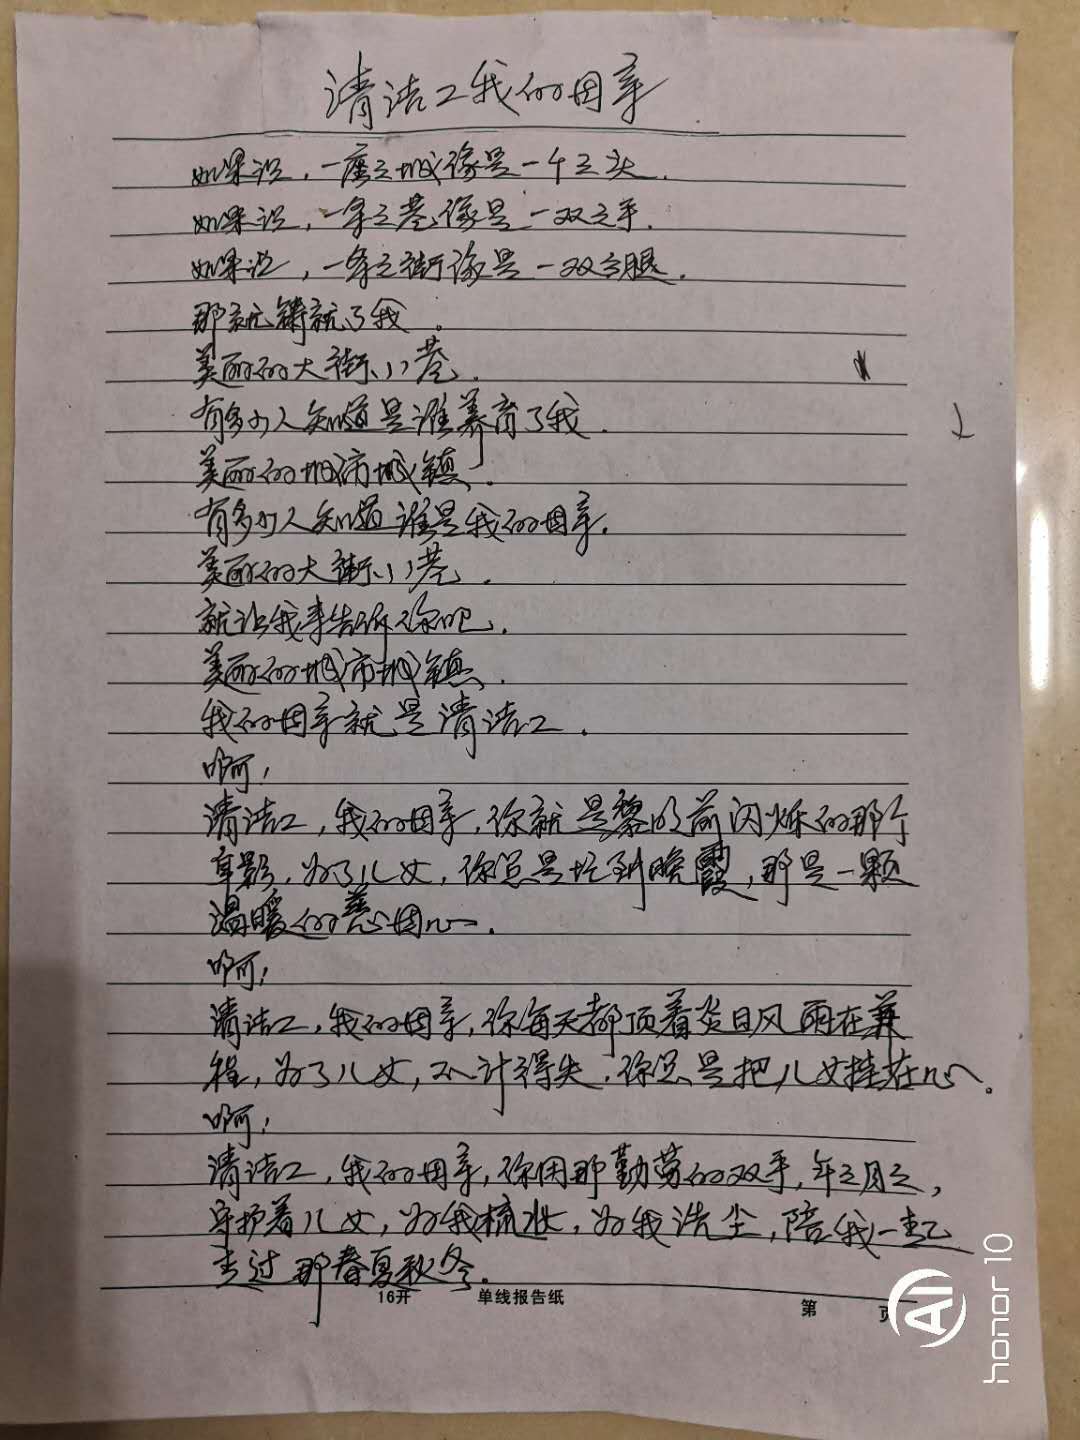 清洁工我的母亲
如果说，一座之城像是一个之头.
如果说，一条之巷像是一双之手.
如果说，一条之街像是一双之腿.
那就铸就了我.
美丽的大街小巷.
有多少人知道是谁养育了我.
美丽的城市城镇.
有多少人知道谁是我的母亲.
美丽的大街小巷.
就让我来告诉你吧.
美丽的城市城镇.
我的母亲就是清洁工.
啊！
清洁工，我的母亲，你就是黎明前闪烁的那个
身影，为了儿女，你总是忙到晚霞，那是一颗
温暖的慈母心.
啊！
清洁工，我的母亲，你每天都顶着炎日风雨在兼
程，为了儿女，不计得失.你总是把儿女挂在心.
啊！
清洁工，我的母亲，你用那勤劳的双手，年之月之，
守护着儿女，为我梳妆，为我洗尘，陪我一起
走过那春夏秋冬.
16开 单线报告纸 第 页
AI honor 10